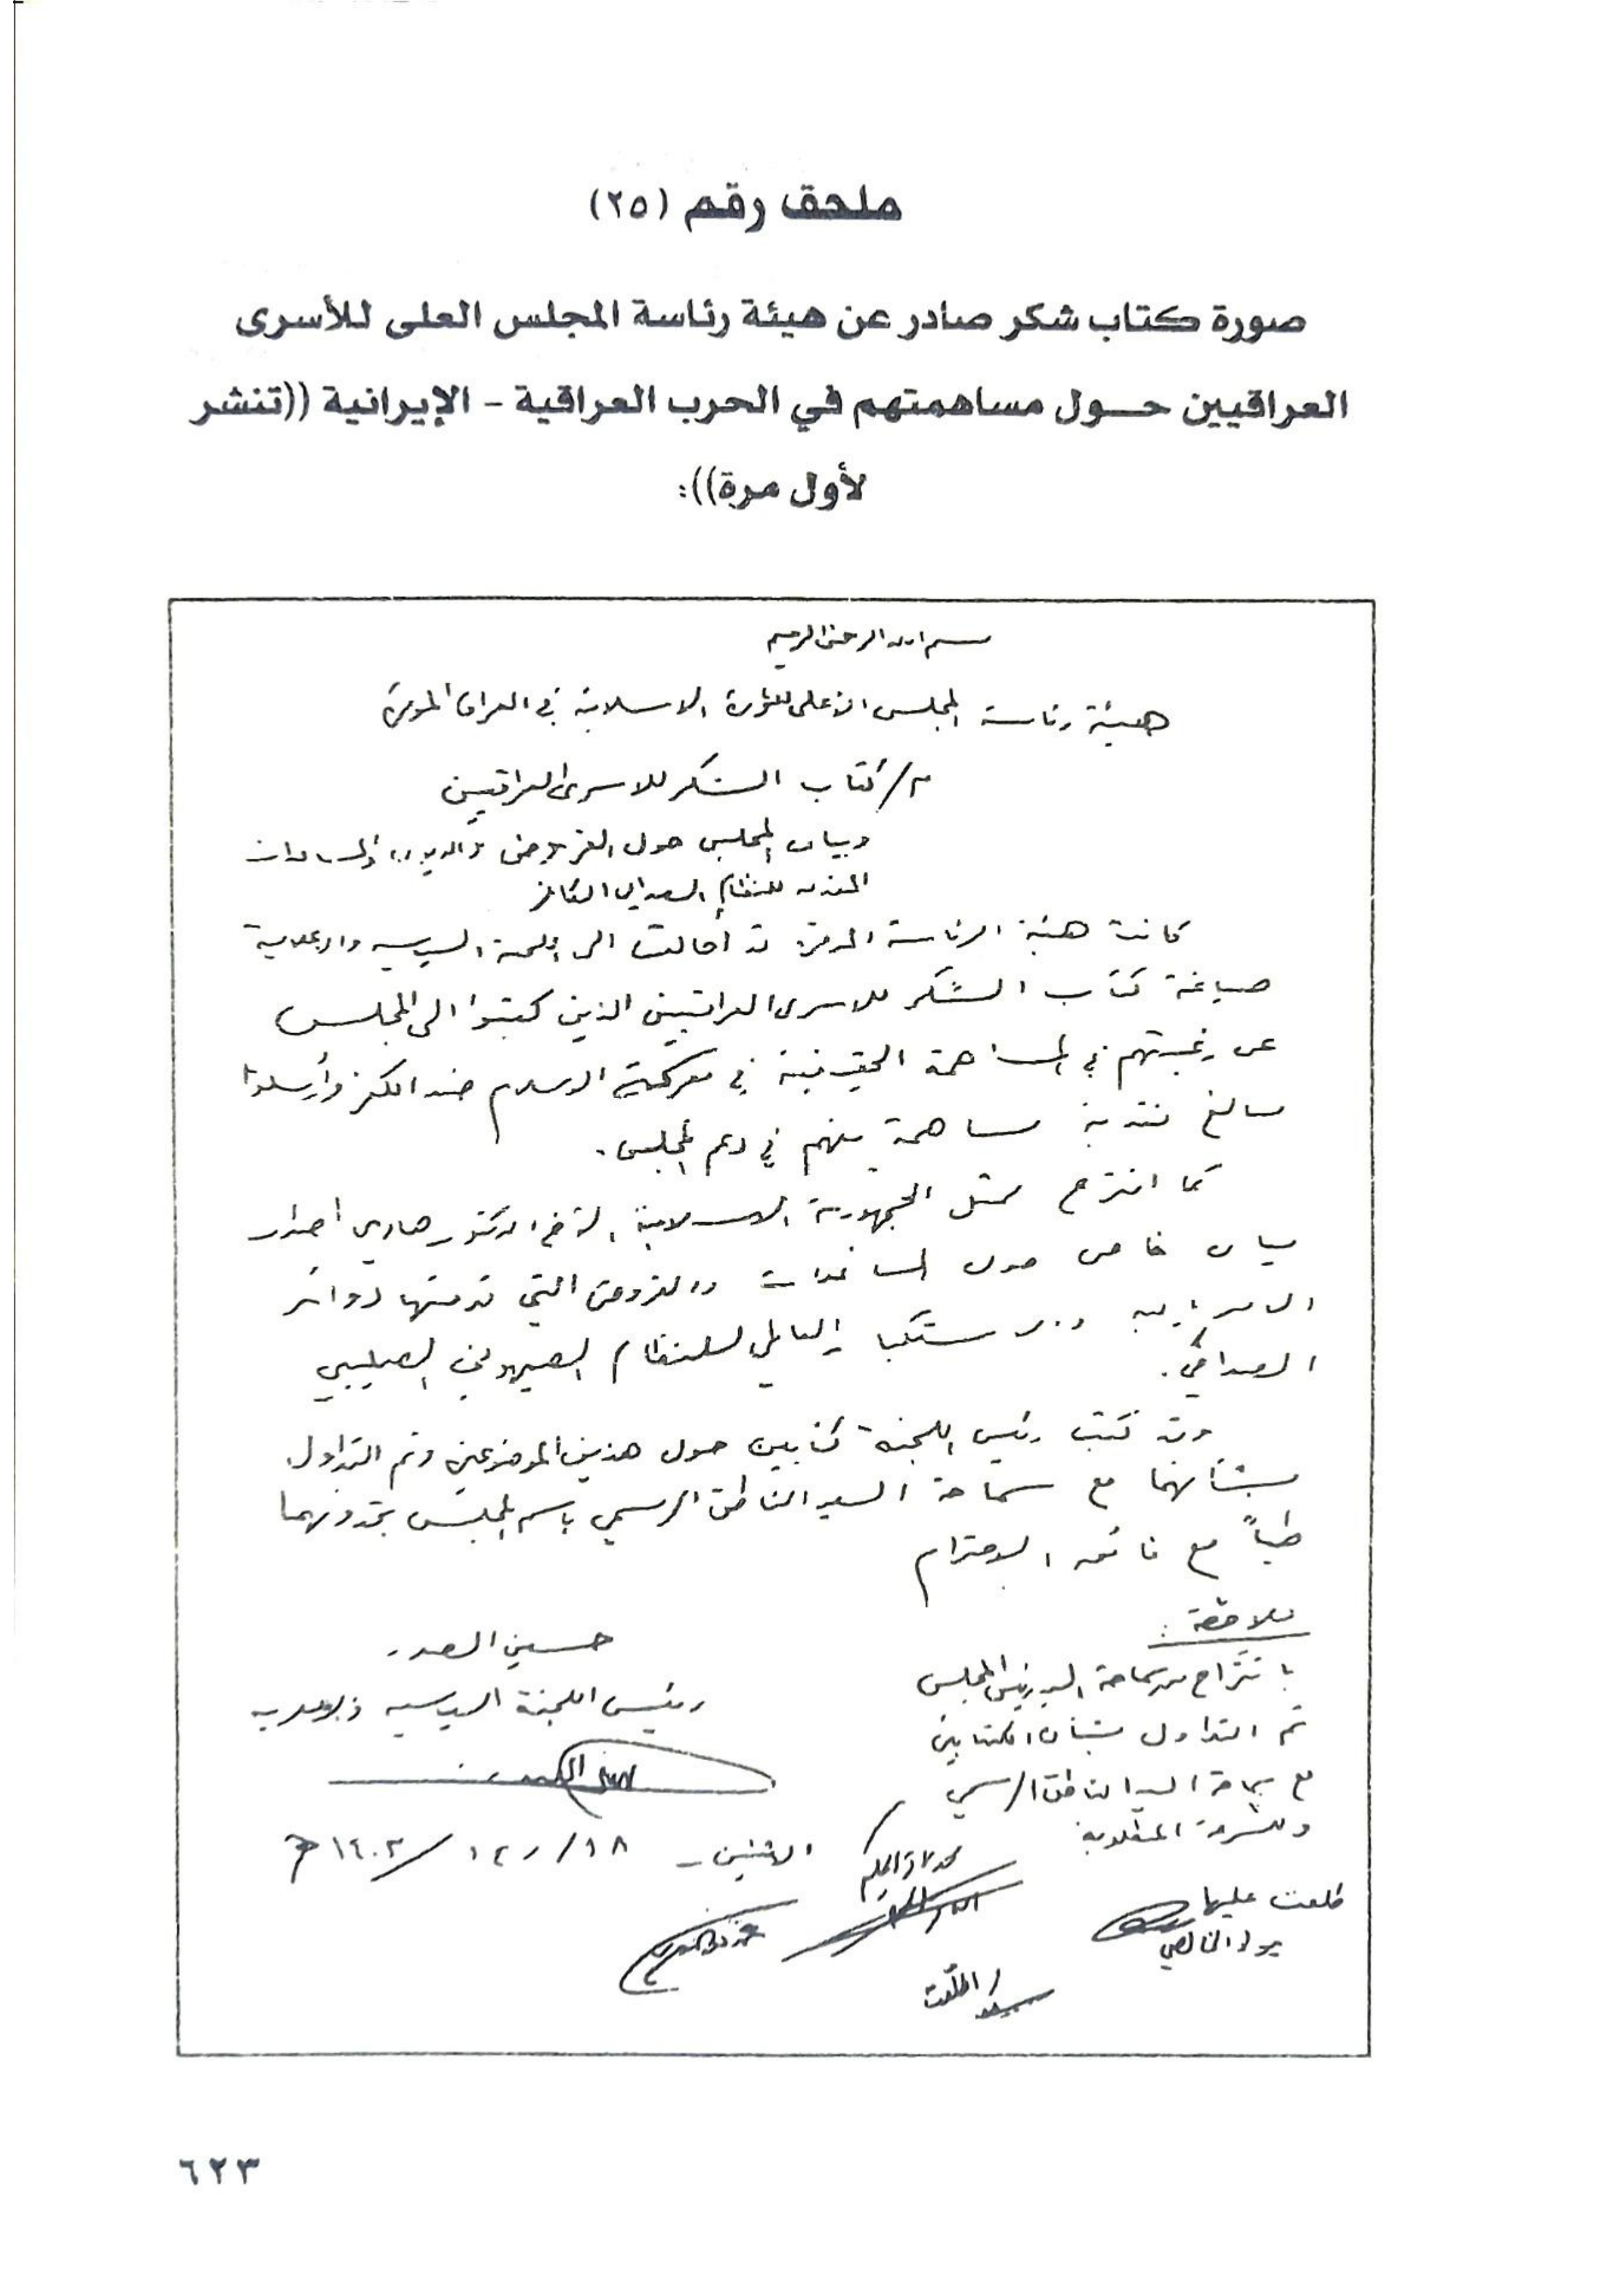 ملحق رقم (٢٥)
صورة كتاب شكر صادر عن هيئة رئاسة المجلس العلى للأسرى
العراقيين حول مساهمتهم في الحرب العراقية - الإيرانية ((تنشر
لأول مرة)):
بسم الله الرحمن الرحيم
هيئة رئاسة المجلس الاعلى للثورة الاسلامية في العراق الموقرة
م/ كتاب الشكر للاسرى العراقيين
وبيان المجلس حول القروض والمساعدات
المقدمة للنظام الصدامي الكافر
كانت هيئة الرئاسة الموقرة قد أحالت الى اللجنة السياسية والاعلامية
صياغة كتاب الشكر للاسرى العراقيين الذين كتبوا الى المجلس
عن رغبتهم في المساهمة الحقيقية في معركة الاسلام ضد الكفر وأرسلوا
مبالغ نقدية مساهمة منهم في دعم المجلس .
كما اقترح ممثل الجمهورية الاسلامية الاخ الدكتور هادي اصدار
بيان خاص حول المساعدات والقروض التي قدمتها دوائر
العالمي للنظام الصهيوني الصليبي
الصدامي .
وقد كتب رئيس اللجنة كتابين حول هذين الموضوعين وتم التداول
بشأنهما مع سماحة السيد الناطق الرسمي باسم المجلس تجدونهما
طياً مع فائق الاحترام
ملاحظة :
باقتراح من سماحة السيد رئيس المجلس
تم التداول بشأن الكتابين
مع سماحة السيد الناطق الرسمي
حسين الصدر
رئيس اللجنة السياسية والاعلامية
الاثنين - ١٨/ ١٢/ ١٤٠٢ هـ
اطلعت عليها
جواد الخالصي
اطلعت
٦٢٣